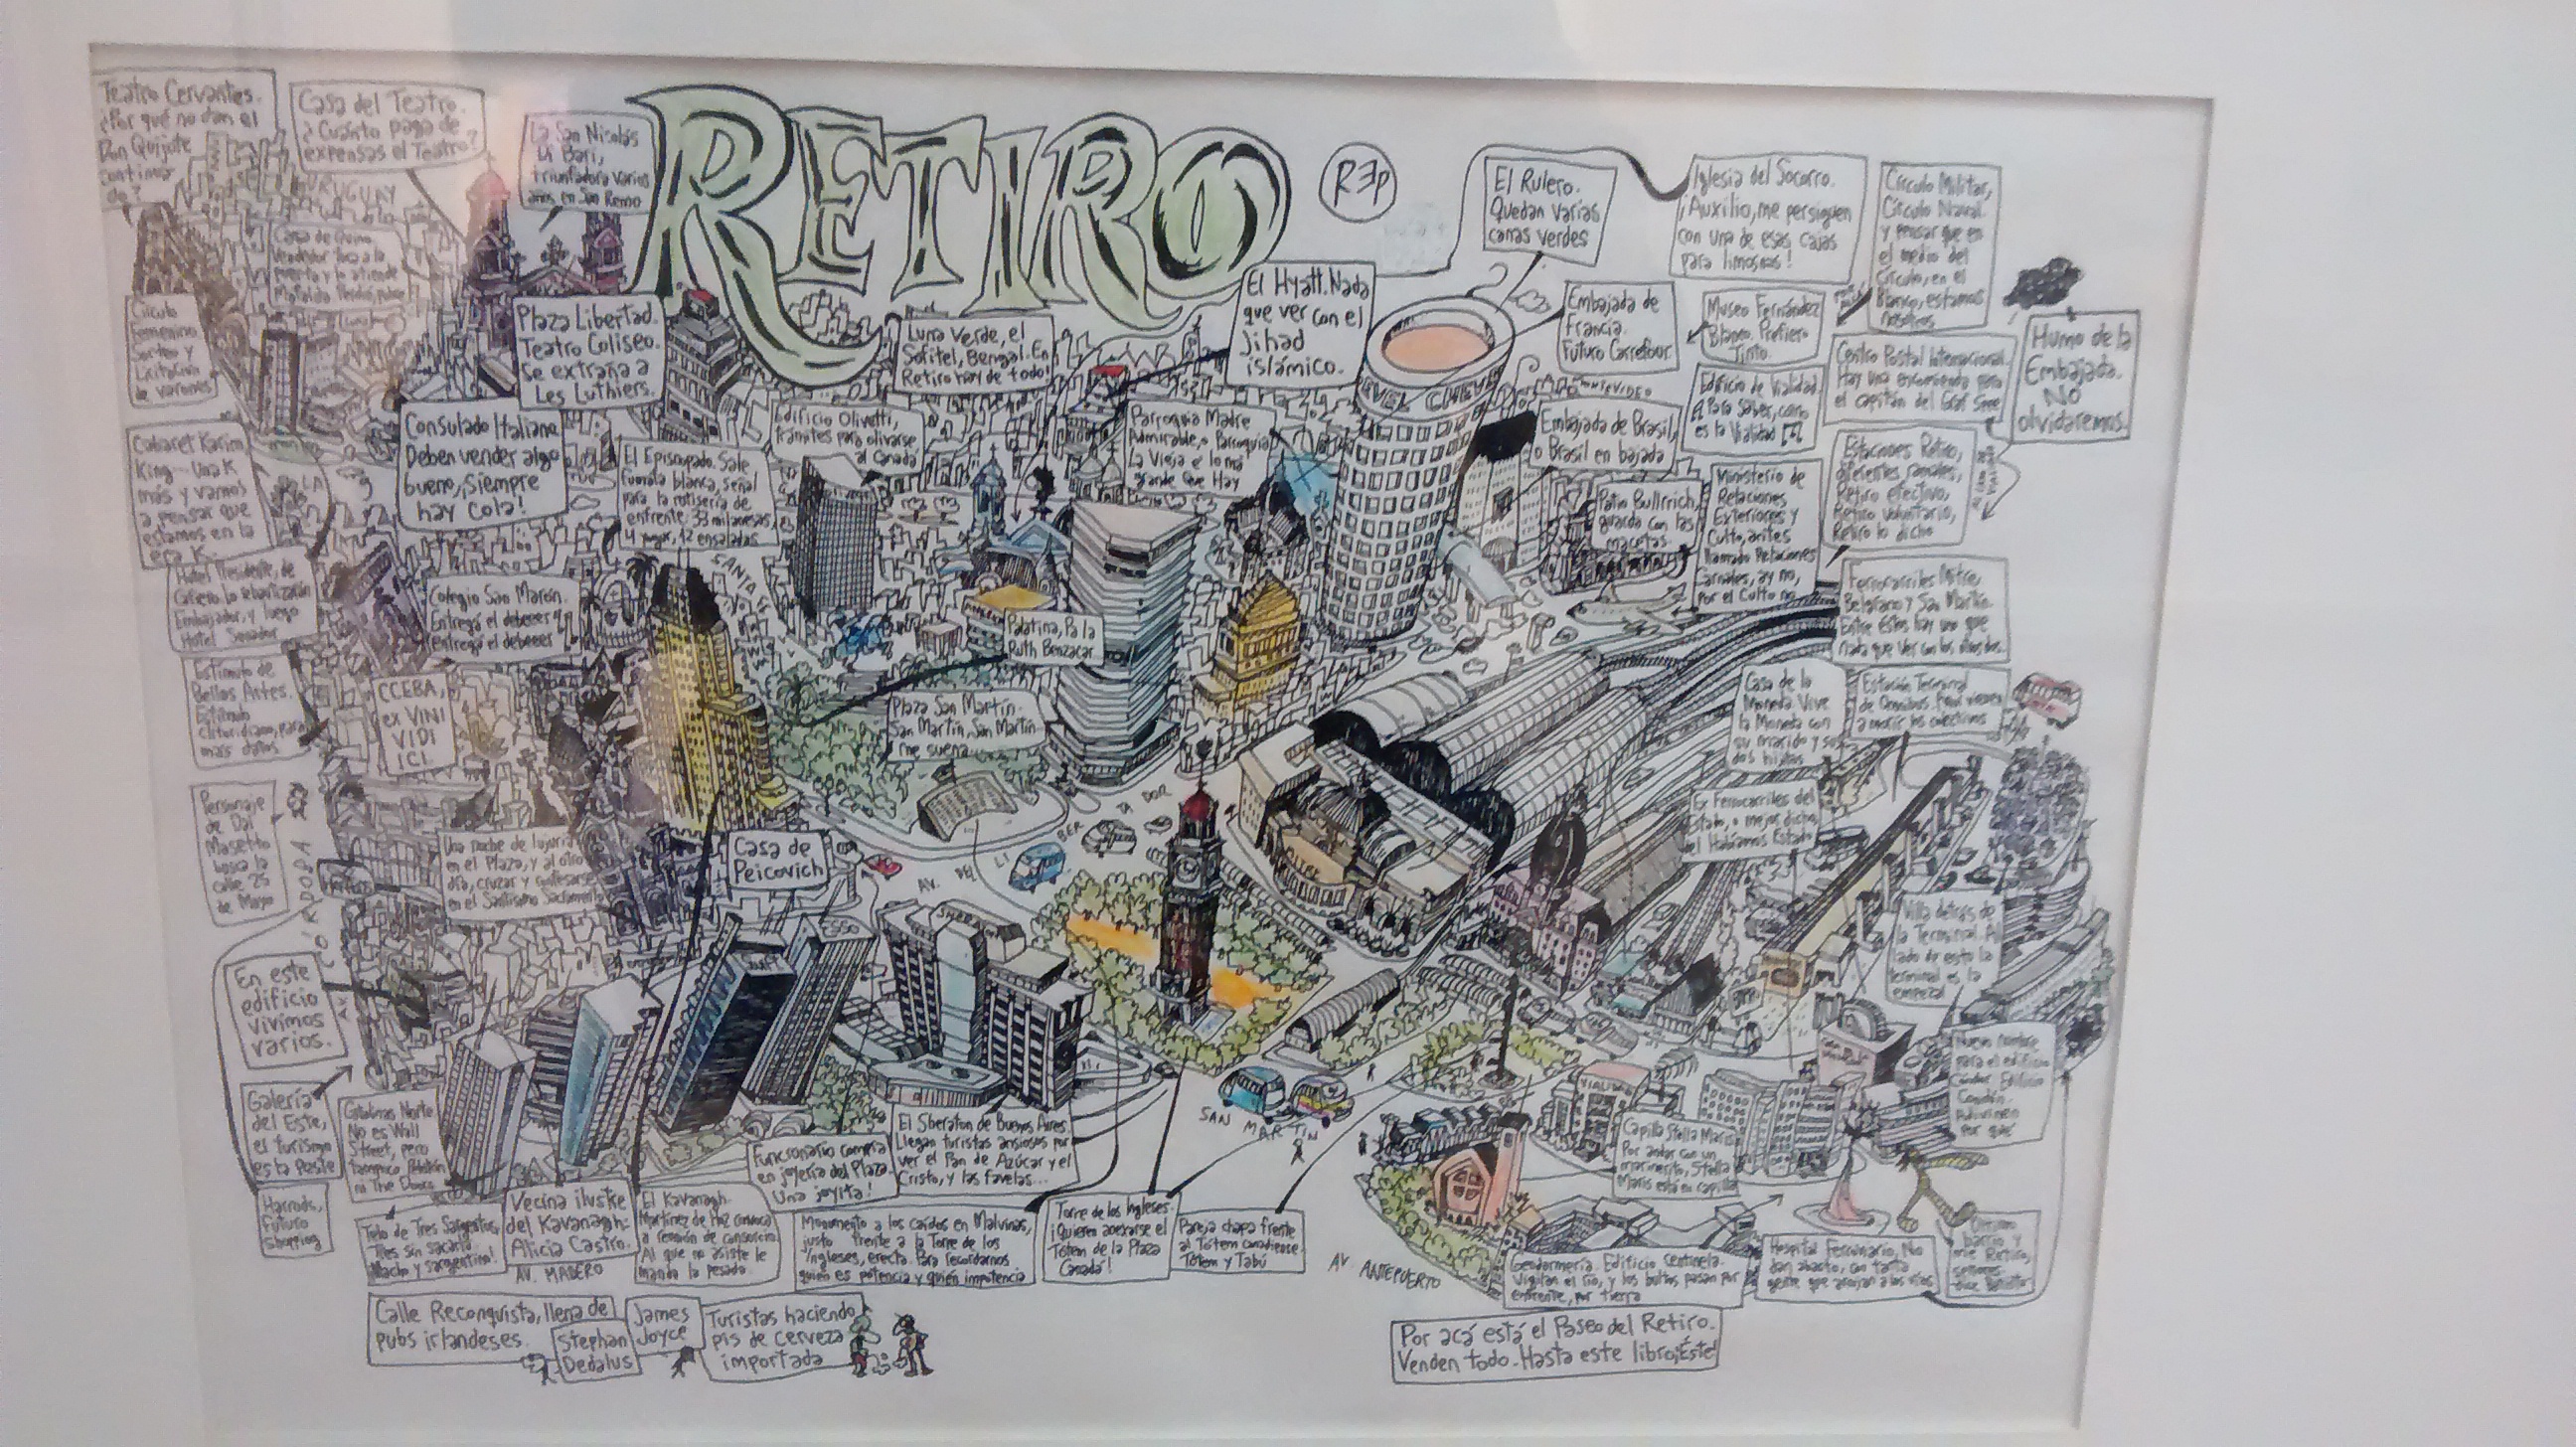 Teatro Cervantes.
¿Por qué no dan el
Don Quijote
continua
do?
Casa del Teatro.
¿Cuánto paga de
expensas el Teatro?
La San Nicolás
di Bari,
triunfadora varios
años en San Remo
RETIRO
REP
El Rulero.
Quedan varias
canas verdes
Iglesia del Socorro.
¡Auxilio, me persiguen
con una de esas cajas
para limosnas!
Círculo Militar,
Círculo Naval.
y pensar que en
el medio del
Círculo, en el
Blanco, estamos
nosotros
URUGUAY
Casa de Quino.
Vendedor toca a la
puerta y lo atiende
Mafalda
Círculo
Femenino
Sorteo y
Licitación
de varones
Plaza Libertad.
Teatro Coliseo.
Se extraña a
Les Luthiers.
Luna Verde, el
Sofitel, Bengal. En
Retiro hay de todo!
El Hyatt. Nada
que ver con el
Jihad
islámico.
Embajada de
Francia.
Futuro Carrefour
Museo Fernández
Blanco. Prefiero
Tinto.
Centro Postal Internacional.
Hay una encomienda para
el capitán del Graf Spee
Humo de la
Embajada.
NO
olvidaremos.
Cabaret Karim
King... Una K
más y vamos
a pensar que
estamos en la
era K.
Consulado Italiano
Deben vender algo
bueno, ¡Siempre
hay cola!
El Episcopado. Sale
fumata blanca, señal
para la rotisería de
enfrente: 33 milanesas
4 puré, 12 ensaladas
Edificio Olivetti,
trámites para olivarse
al Canadá
Parroquia Madre
Admirable, o Parroquia
La Vieja e lo má
grande que Hay
MONTEVIDEO
Embajada de Brasil,
o Brasil en bajada
Edificio de Vialidad.
Para Saber, como
es la Vialidad
Estaciones Retiro,
diferentes ramales,
Retiro efectivo,
Retiro voluntario,
Retiro lo dicho
Patio Bullrich,
guarda con las
macetas.
Ministerio de
Relaciones
Exteriores y
Culto, antes
llamado Relaciones
Carnales, ay no,
por el Culto no
Hotel Presidente, de
Embajador, y luego
Hotel Senador
Colegio San Marón.
Entregá el deberer
entregá el deberer
SANTA
Palatina, Pa la
Ruth Benzacar
Ferrocarriles Mitre,
Belgrano y San Martín.
Entre éstos hay uno que
nada que ver con los otros dos.
Estímulo de
Bellas Artes.
Estímulo
clitoridiano, para
más datos.
CCEBA,
ex VINI
VIDI
ICI.
Plaza San Martín.
San Martín, San Martín..
me suena..
Casa de la
Moneda. Vive
la Moneda con
su marido y sus
dos hijitas
Estación Terminal
de Omnibus. Aquí vienen
a morir los colectivos
Personaje
de Dal
Masetto
busca la
calle 25
de Mayo
Una noche de lujuria
en el Plaza, y al otro
día, cruzar y confesarse
en el Santísimo Sacramento
Casa de
Peicovich
AV. DEL LIBERTADOR
Ex Ferrocarriles del
Estado, o mejor dicho,
el Habíamos Estado
AV. CÓRDOBA
ESSO
SHERATON
MITRE
Villa detrás de
la Terminal. Al
lado de esto la
terminal es la
empezal
En este
edificio
vivimos
varios.
Nuevo nombre
para el edificio
Cóndor: Edificio
Condón.
Adivinen
por qué
Galería
del Este,
el turismo
es ta Peste
Catalinas Norte
No es Wall
Street, pero
tampoco
ni The Doors
Funcionario compra
en joyería del Plaza.
Una joyita!
El Sheraton de Buenos Aires.
Llegan turistas ansiosos por
ver el Pan de Azúcar y el
Cristo, y las favelas...
SAN MARTIN
VIALIDAD
Capilla Stella Maris
Por andar con un
marinerito, Stella
Maris está en capilla
Harrods,
futuro
shopping
Telo de Tres Sargentos
Tres sin sacarla
Macho y sargentino!
Vecina ilustre
del Kavanagh:
Alicia Castro.
AV. MADERO
El Kavanagh.
Martínez de Hoz convoca
a reunión de consorcio.
Al que no asiste le
manda la pesada.
Monumento a los caídos en Malvinas,
justo frente a la Torre de los
Ingleses, erecta. Para recordarnos
quién es potencia y quién impotencia
Torre de los Ingleses.
¡Quieren anexarse el
Tótem de la Plaza
Canadá!
Pareja chapa frente
al Tótem canadiense.
Totem y Tabú
AV ANTEPUERTO
Gendarmería. Edificio Centinela.
Vigilan el río, y los bultos pasan por
enfrente, por tierra
Hospital Ferroviario, No
dan abasto, con tanta
gente que arrojan a las vías
barrio, y
me Retiro,
señores
Calle Reconquista, llena de
pubs irlandeses.
Stephan
Dedalus
James
Joyce
Turistas haciendo
pis de cerveza
importada
Por acá está el Paseo del Retiro.
Venden todo. Hasta este libro ¡Éste!